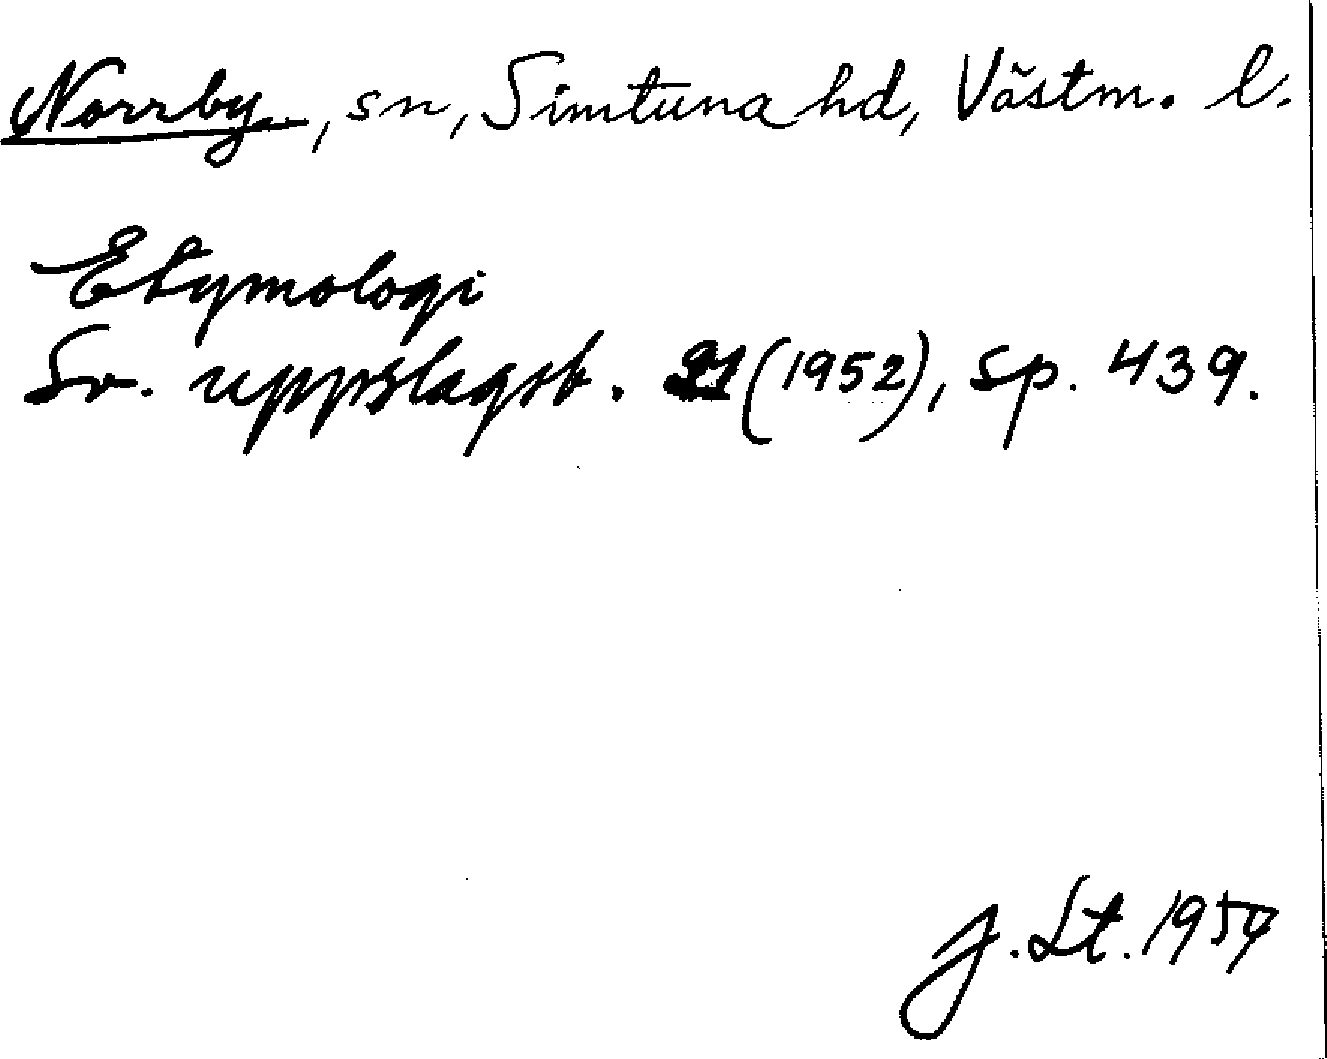 Norrby, sn, Simtuna hd, Västm. l.
Etymologi
Sv. uppslagsb. 21 (1952), sp. 439.
J. St. 1954